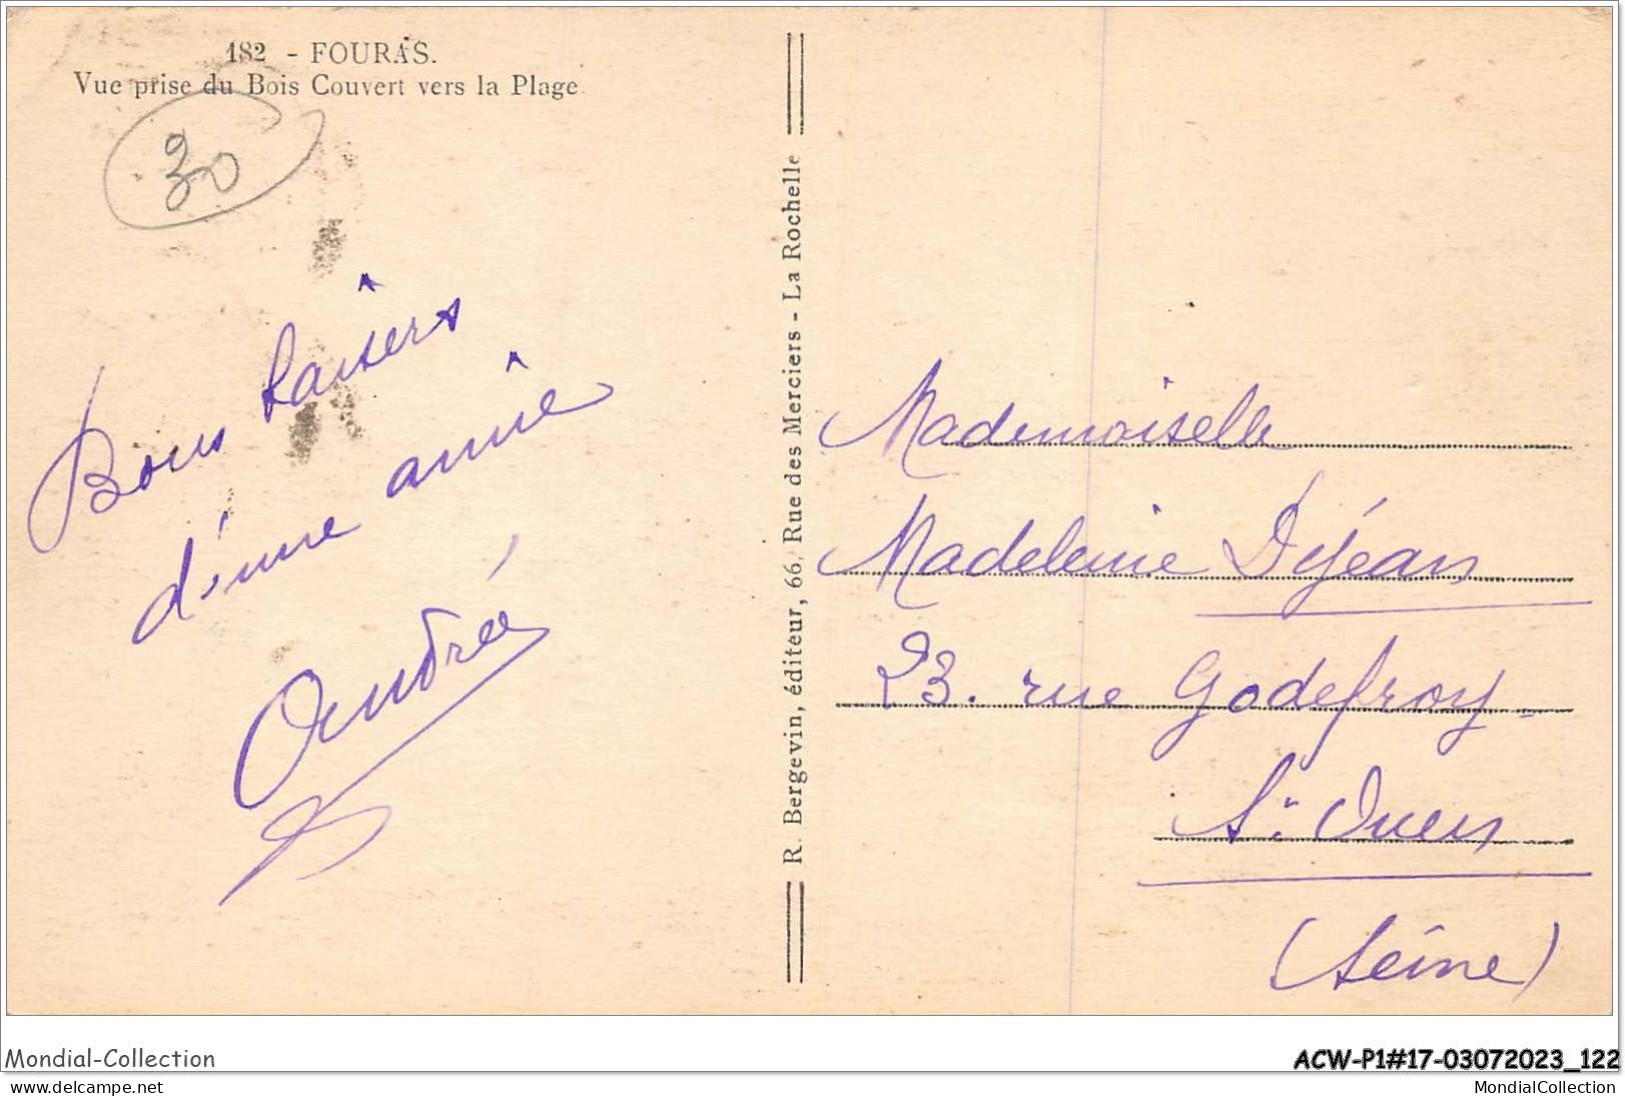 182 - FOURAS.
Vue prise du Bois Couvert vers la Plage
30
Bons baisers
d'une amie
Andrée
R. Bergevin, éditeur, 66, Rue des Merciers - La Rochelle
Mademoiselle
Madeleine Déjean
23. rue Godefroy-
St Ouen
(Seine)
Mondial-Collection
ACW-P1#17-03072023_122
www.delcampe.net
MondialCollection